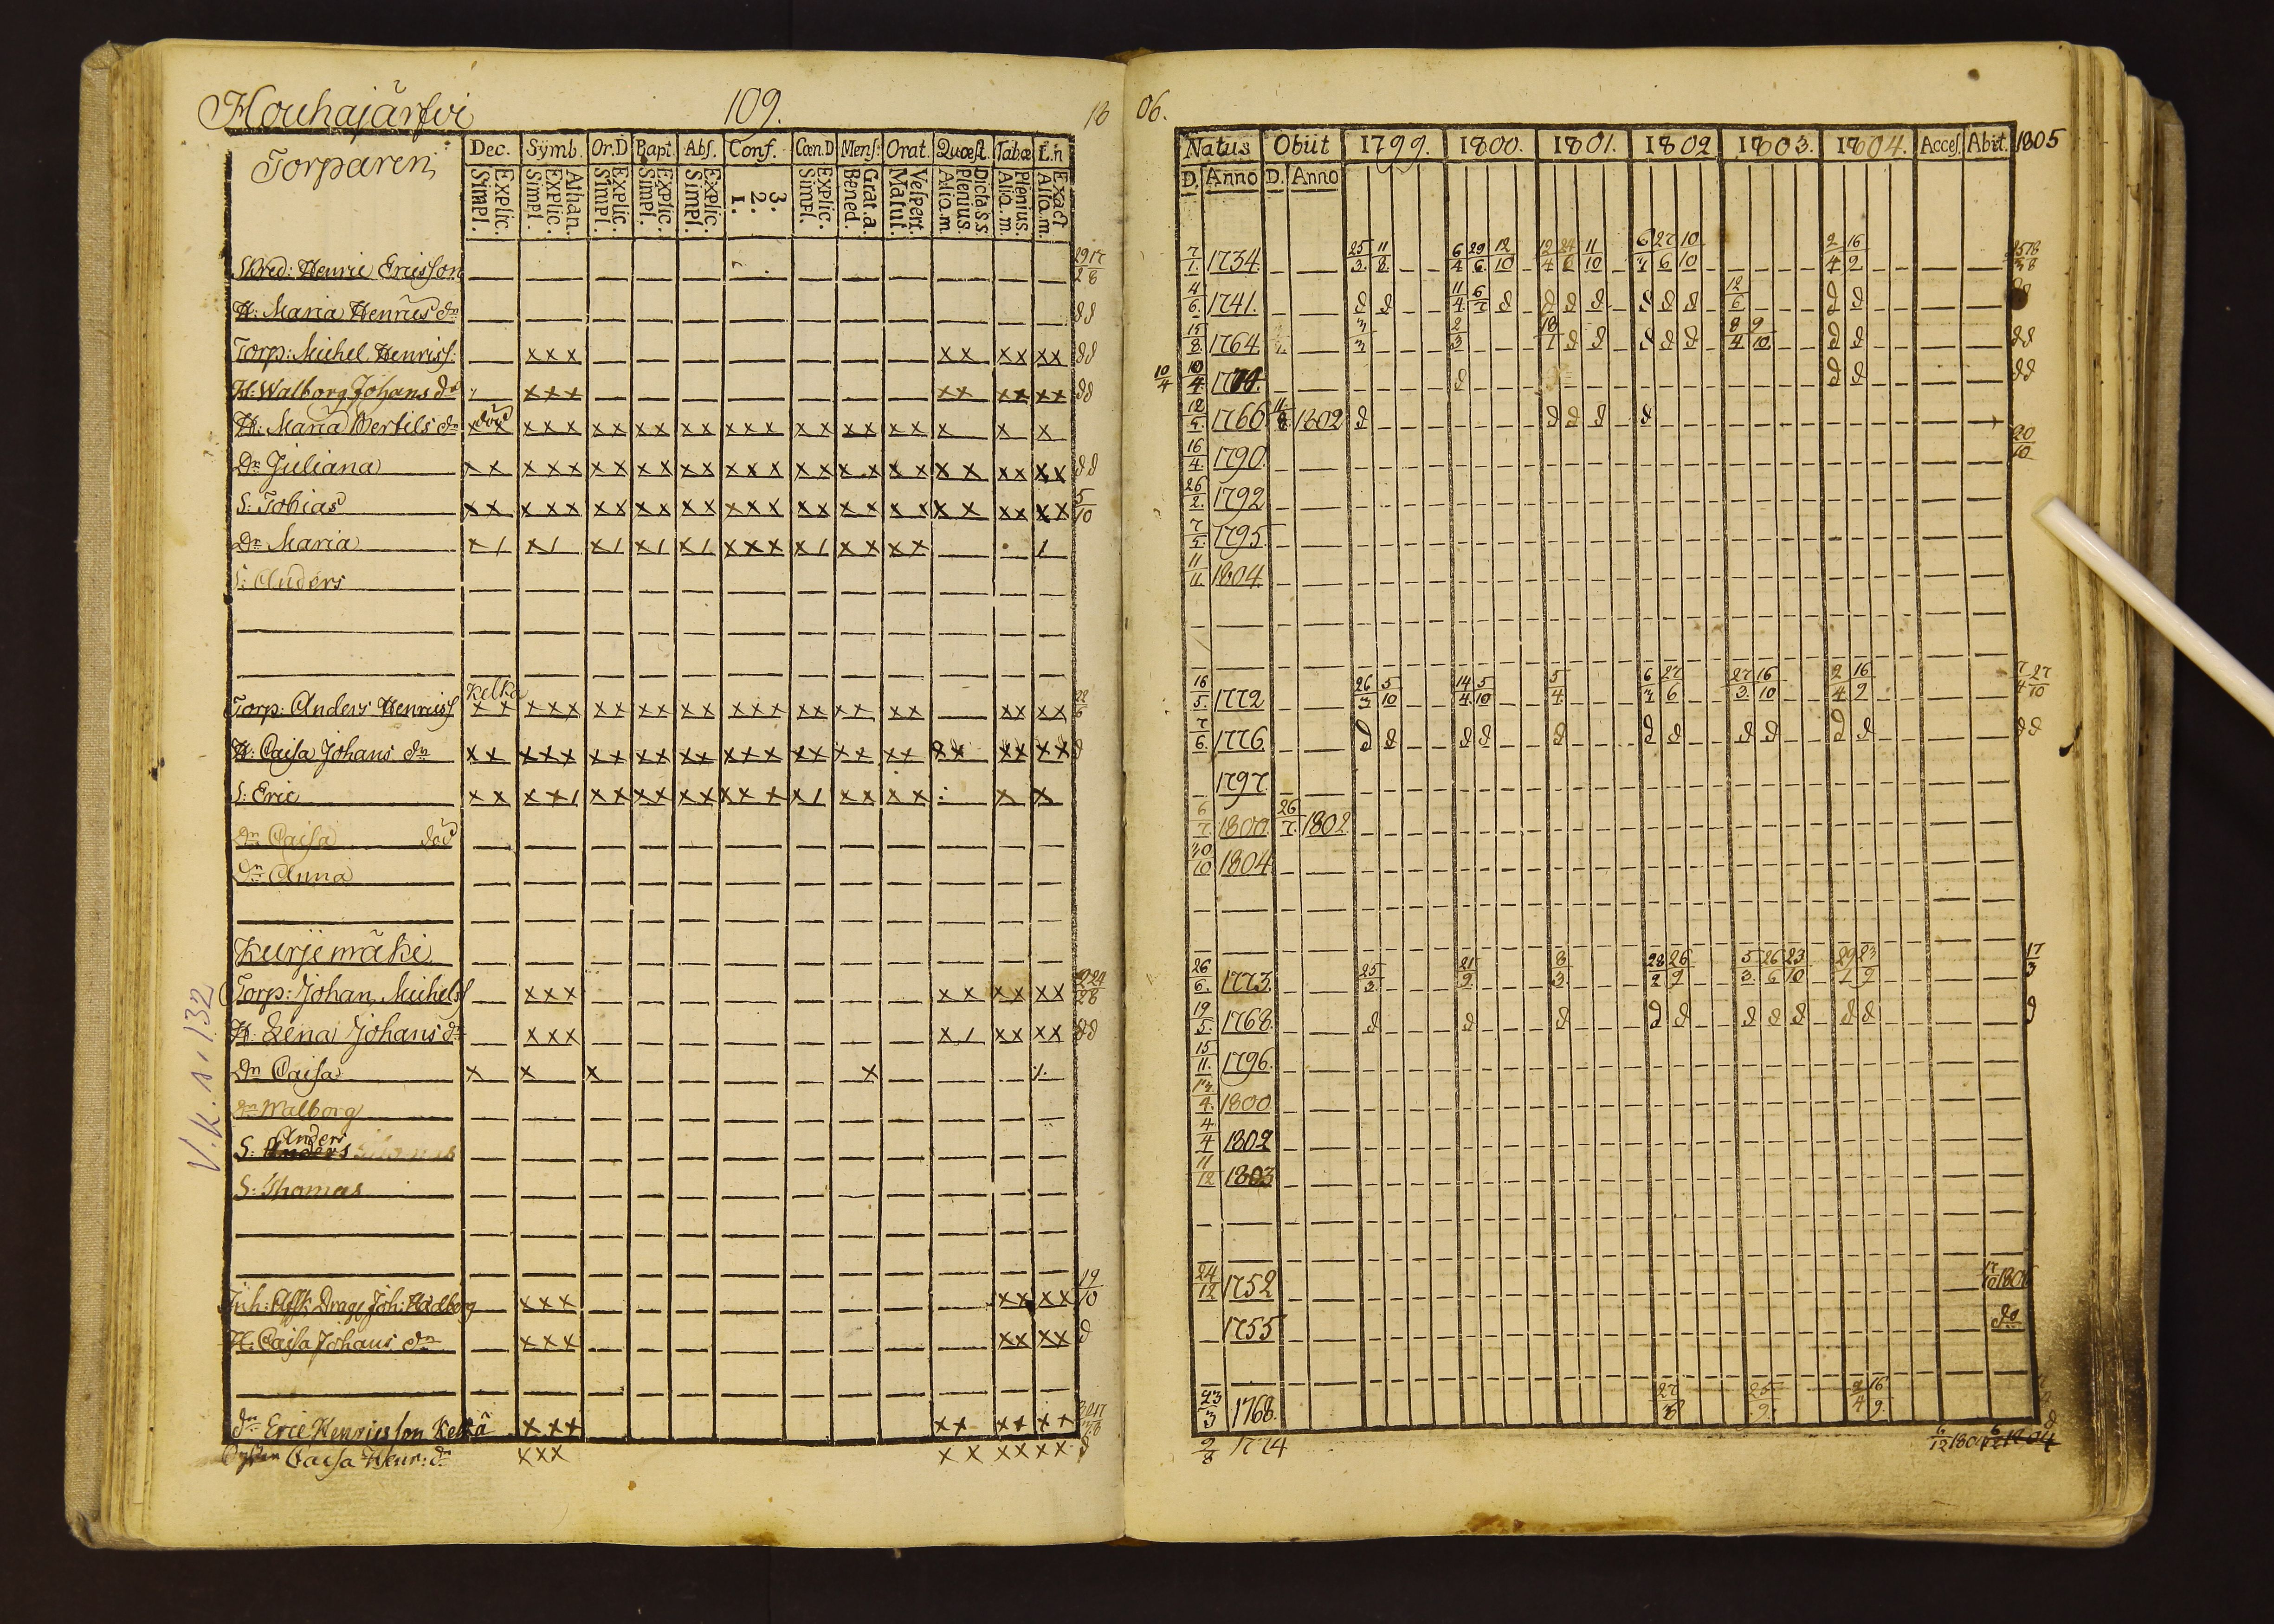 Houhajärfvi 109. 18 06.
Torparen
Dec. Symb. Or.D Bapt. Abs. Conf. Cœn.D Mens. Orat. Quæst. Tabæ L.n
Simpl. Explic. Simpl. Explic. Athan. Simpl. Explic. Simpl. Explic. Simpl. Explic. 1. 2. 3. Simpl. Explic. Bened. Grat.a. Matut. Vespert. Alio.m. Plenius. Dicta.s.s. Alio.m. Plenius. Alio.m. Exact
Natus Obiit 1799. 1800. 1801. 1802 1803. 1804. Acces. Abiit. 1805
D. Anno D. Anno
Skred: Henric Ericsson 7/1. 1734. 25/3. 11/8. 6/4 29/6. 12/10 12/4 24/6 11/10 6/3 27/6 10/10 2/4 16/9
H: Maria Henrics dr 4/6. 1741. d d 11/4. 6/7 d d d d d d d 12/6 d d
Torp: Michel Henricss. xxx xx xx xx dd 15/8. 1764. 3/3 2/3 18/1 d d d d d 8/4 9/10 d d dd
H: Walborg Johans dr xxx xx xx xx dd 10/4 10/4 d d d dd
H: Maria Bertils dr död x xxx xx xx xx xxx xx xx xx x x x 12/5. 1766. 11/8 1802 d d d d d
Dr Juliana xx xxx xx xx xx xxx xx xx xx xx xx xx dd 16/4. 1790. 20/10
S: Tobias xx xxx xx xx xx xxx xx xx xx xx xx xx 5/10 26/2. 1792
Dr Maria x/ x/ x/ x/ x/ xxx x/ xx xx / 7/5. 1795.
S: Anders 11/11 1804.
Torp: Anders Henricss Kelka xx xxx xx xx xx xxx xx xx xx xx xx 22/6 16/5. 1772 26/3 5/10 14/4. 5/10 5/4. 6/3 27/6 27/3. 16/10 2/4 16/9 7/4 27/10
H: Caisa Johans dr xx xxx xx xx xx xxx xx xx xx xx xx xx d 7/6. 1776 d d d d d d d d d d d dd
S: Eric xx xx/ xx xx xx xxx x/ xx xx : x x 1797
Dr Caisa död 6/7. 1800. 26/7. 1802.
Dr Anna 30/10 1804.
Kurjemäki
Torp: Johan Michelss xxx xx xx xx 26/6. 1773. 25/3. 21/9. 8/3. 28/2 26/9 5/3. 26/6 23/10 29/1 23/9 17/3
H: Lena Johans dr xxx x/ xx xx dd 19/5. 1768. d d d d d d d d d d d
Dr Caisa x x x x 15/11. 1796.
Dr Walborg 1800
S: Anders 4/4 1802
S: Thomas 11/12 1803
Inh: Afsk. Drag. Joh: Hadborg xxx xx xx 19/10 24/12 1752
H: Caisa Johans dr xxx xx xx d 1755 do
dr Eric Henricsson Kelkä xxx xx xx xx 23/3 1768.
Caisa Henr: dr xxx xx xx xx d 2/8 1774
V.k.s.132